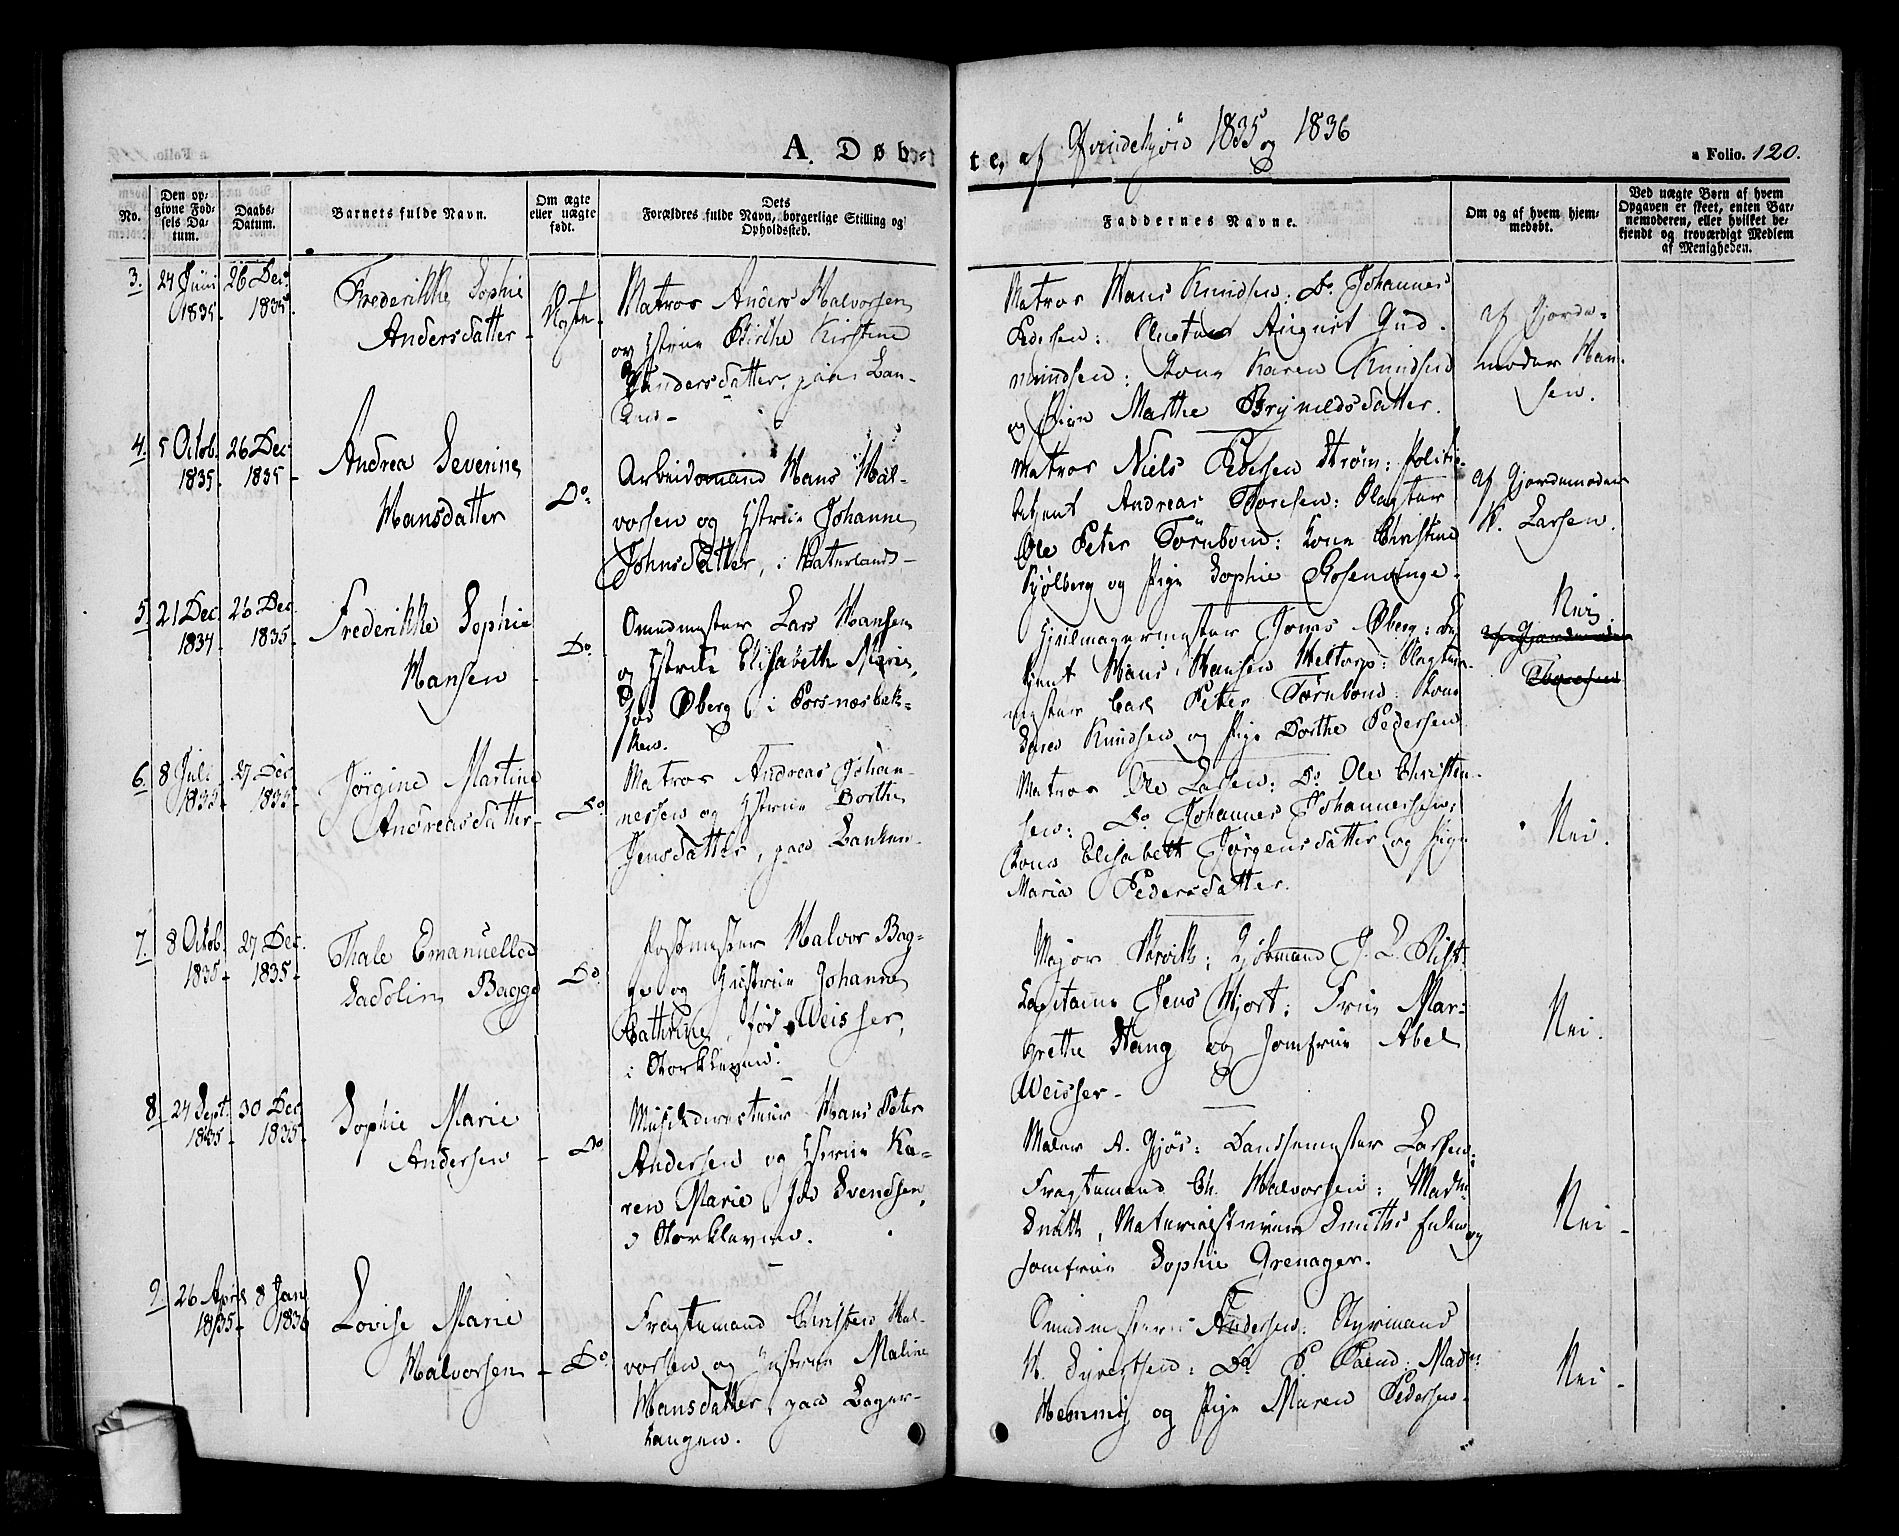 A. Døb-
te, af Qvindekjøn 1835 og 1836
a Folio. 120.
No.
Den op-
givne Fød-
sels Da-
tum.
Daabs-
Datum.
Barnets fulde Navn.
Om ægte
eller uægte
født.
Dets
Forældres fulde Navn, borgerlige Stilling og
Opholdssted.
Faddernes Navne.
Om og af hvem hjem-
medøbt.
Ved uægte Børn af hvem
Opgaven er skeet, enten Bar-
nemoderen, eller hvilket be-
kjendt og troværdigt Medlem
af Menigheden.
3. 24 Juni 26 Dec.
1835. 1835.
Frederikke Sophie
Andersdatter
Ægte
Matros Anders Halvorsen
og Hstrue Birthe Kirstine
Andersdatter, paa Lan-
Matros Hans Knudsen: Do Johannes
Pedersen: August Gud-
mundsen: Kone Karen Knudsen
og Pige Marthe Brynildsdatter.
af Gjorde-
moder Han-
sen.
4. 5 Octob. 26 Dec.
1835. 1835
Andrea Severine
Hansdatter
Do.
Arbeidsmand Hans Hal-
vorsen og Hstrue Johanne
Johnsdatter, i Vaterland
Matros Niels Pedersen Strøm: Politie-
Betjent Andreas Thoresen: Slagter
Ole Peter Törnbom: Kone Christine
Kjølberg og Pige Sophie Rosenvinge.
af Gjordemoder
K. Larsen.
5. 21 Dec. 26 Dec.
1834 1835.
Frederikke Sophie
Hansen
Do
Smedmester Lars Hansen
og Hstrue Elisabeth Marie,
fød Øberg, i Forsnæsbak-
ken.
Hjulmagermester Jonas Øberg: Be
tjent Hans Hansen Weltorp: Slagter-
mester Carl Peter Törnbom: Kone
Knudsen og Pige Dorthe Pedersen
Nei
af Gjordemoder
Thoresen
6. 8 Juli 27 Dec.
1835. 1835.
Jørgine Martine
Andreasdatter
Do
Matros Andreas Johan-
nessen og Hstrue Borthe
Jensdatter, paa Banken.
Matros Ole Larsen: Do Ole Christen-
sen: Do Johannes Johannessen:
Kone Elisabeth Jørgensdatter og Pige
Maria Pedersdatter.
Nei.
7. 8 Octob. 27 Dec.
1835. 1835.
Thale Emanuelle
Sadolin Bagge
Do
Postmester Halvor Bag-
ge og Hustrue Johanne
Cathrine, fød Weisser,
i Storkleven.
Major Krvik: Kjøbmand J. L. Rist:
Capitaine Jens Hjort: Frue Mar-
grethe Stang og Jomfrue Abel
Weisser.
Nei.
8. 24 Sept. 30 Dec
1835. 1835.
Sophie Marie
Andersen
Do
Musikdirecteur Hans Peter
Andersen og Hstrue Ka-
ren Marie, fød Svendsen,
i Storkleven.
Maler A. Gjøs: Dandsemester Larsen:
Fragtemand Ch. Halvorsen: Madm
Smith, Materialskriver Smiths Enke og
Jomfrue Sophie Grenager.
Nei
9. 26 April 8 Jan.
1835. 1836
Lovise Marie
Halvorsen
Do.
Fragtemand Christen Hal-
vorsen og Hustrue Maline
Hansdatter, paa Lager-
tangen.
Smedmester Andersen: Styrmand
H. Syvertsen: Do P. Svend: Madm:
Hemmig og Pige Maren Pedersen.
Nei